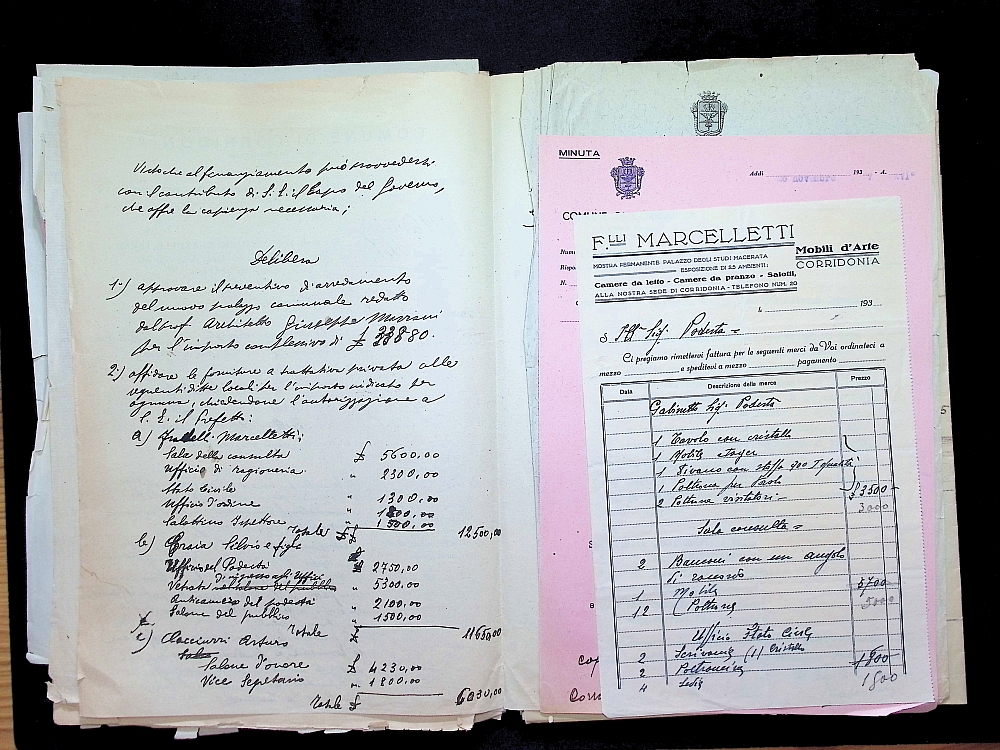 Visto che al finanziamento può provvedersi
con il contributo di S. E. il Capo del Governo,
che offre la capienza necessaria;
Delibera
1-) approvare il preventivo d'arredamento
del nuovo palazzo comunale redatto
dal prof. Architetto Giuseppe Marrani
per l'importo complessivo di £
2-) affidare le forniture a trattativa privata alle
seguenti ditte locali per l'importo indicato per
ognuna, chiedendone l'autorizzazione a
S. E. il Prefetto:
a) Fratelli Marcelletti:
Sala della consulta £ 5600,00
Ufficio di ragioneria " 2300,00
Stato Civile " 1300,00
Ufficio d'ordine "
Salottino Ispettore " 1500,00
Totale £ 12500,00
b) Craia Silvio e figli
Ufficio del Podestà 2750,00
d'ingresso agli uffici
Vetrata 5300,00
Anticamera del podestà " 2100,00
Salone del pubblico " 1500,00
Totale £ 11650,00
c) Arturo
Salone d'onore £ 4230,00
Vice Segretario " 1800,00
Totale £ 6030,00
MINUTA
Addì 193 - A.
COMUNE
Num
Rispo
N.
F.LLI MARCELLETTI
Mobili d'Arte
CORRIDONIA
MOSTRA PERMANENTE PALAZZO DEGLI STUDI MACERATA
ESPOSIZIONE DI 25 AMBIENTI:
Camere da letto - Camere da pranzo - Salotti,
ALLA NOSTRA SEDE DI CORRIDONIA - TELEFONO NUM. 20
li 193
Ill Sig. Podestà =
Ci pregiamo rimettervi fattura per le seguenti merci da Voi ordinateci a
mezzo e speditevi a mezzo pagamento
Data Descrizione della merce Prezzo
Gabinetto Sig. Podestà
1 Tavolo con cristallo
1 Mobile etager
1 Divano con stoffa 900 I qualità
1 Poltrona per
2 Poltrone visitatori - £ 3500
3000
Sala consulta =
2 Banconi con un angolo
di raccordo
1 Mobile 5700
12 Poltrone 5000
Ufficio Stato Civile
2 Scrivanie (1) Cristallo
2 Poltroncine 1800
4 Sedie 1800
5